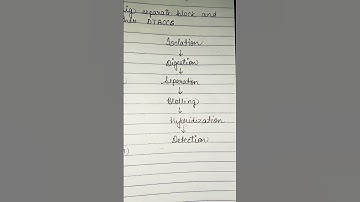 separate block and
Isolation
↓
Digestion
↓
Separation
↓
Blotting
↓
Hybridization
↓
Detection